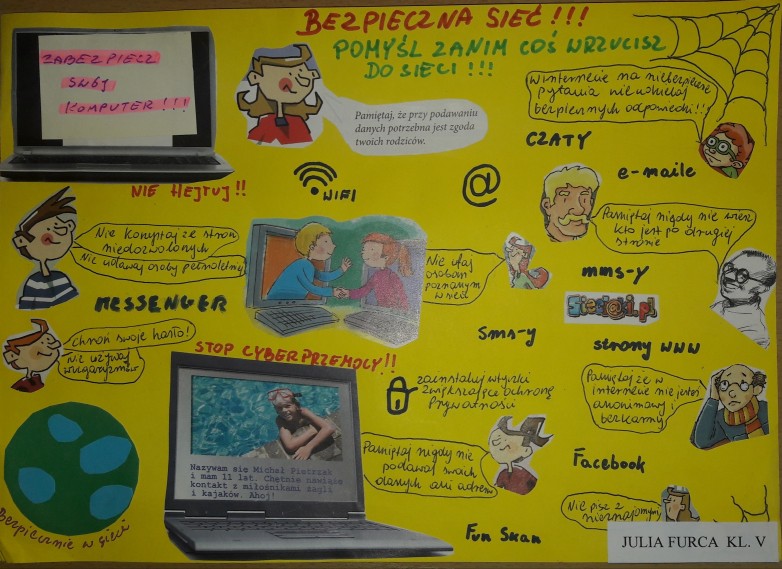 BEZPIECZNA SIEĆ!!!
POMYŚL ZANIM COŚ WRZUCISZ
DO SIECI!!!
ZABEZPIECZ
SWÓJ
KOMPUTER!!!
Pamiętaj, że przy podawaniu
danych potrzebna jest zgoda
twoich rodziców.
W internecie na niebezpieczne
pytania nie udzielaj
bezpiecznych odpowiedzi!!
CZATY
e-maile
NIE HEJTUJ!!
WIFI
@
Nie korzystaj ze stron
niedozwolonych
Nie udawaj osoby pełnoletniej
Pamiętaj nigdy nie wiesz
kto jest po drugiej
stronie
Nie ufaj
osobom
poznanym
w sieci
mms-y
MESSENGER
Sieciaki.pl
Sms-y
strony WWW
Chroń swoje hasło!
Nie używaj
wulgaryzmów
STOP CYBERPRZEMOCY!!
zainstaluj wtyczki
zwiększające ochronę
prywatności
Pamiętaj że w
internecie nie jesteś
anonimowy i
bezkarny
Nazywam się Michał Pietrzak
i mam 11 lat. Chętnie nawiążę
kontakt z miłośnikami żagli
i kajaków. Ahoj!
Pamiętaj nigdy nie
podawaj swoich
danych ani adresu
Facebook
Nie pisz z
nieznajomymi
Bezpiecznie w sieci
Fun
JULIA FURCA KL. V